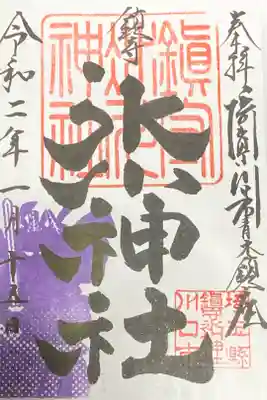 奉拝 埼玉県川口市青木鎮座
鎮守
氷川神社
令和二年一月十五日
鎮守
氷川
神社
埼玉縣
川口市